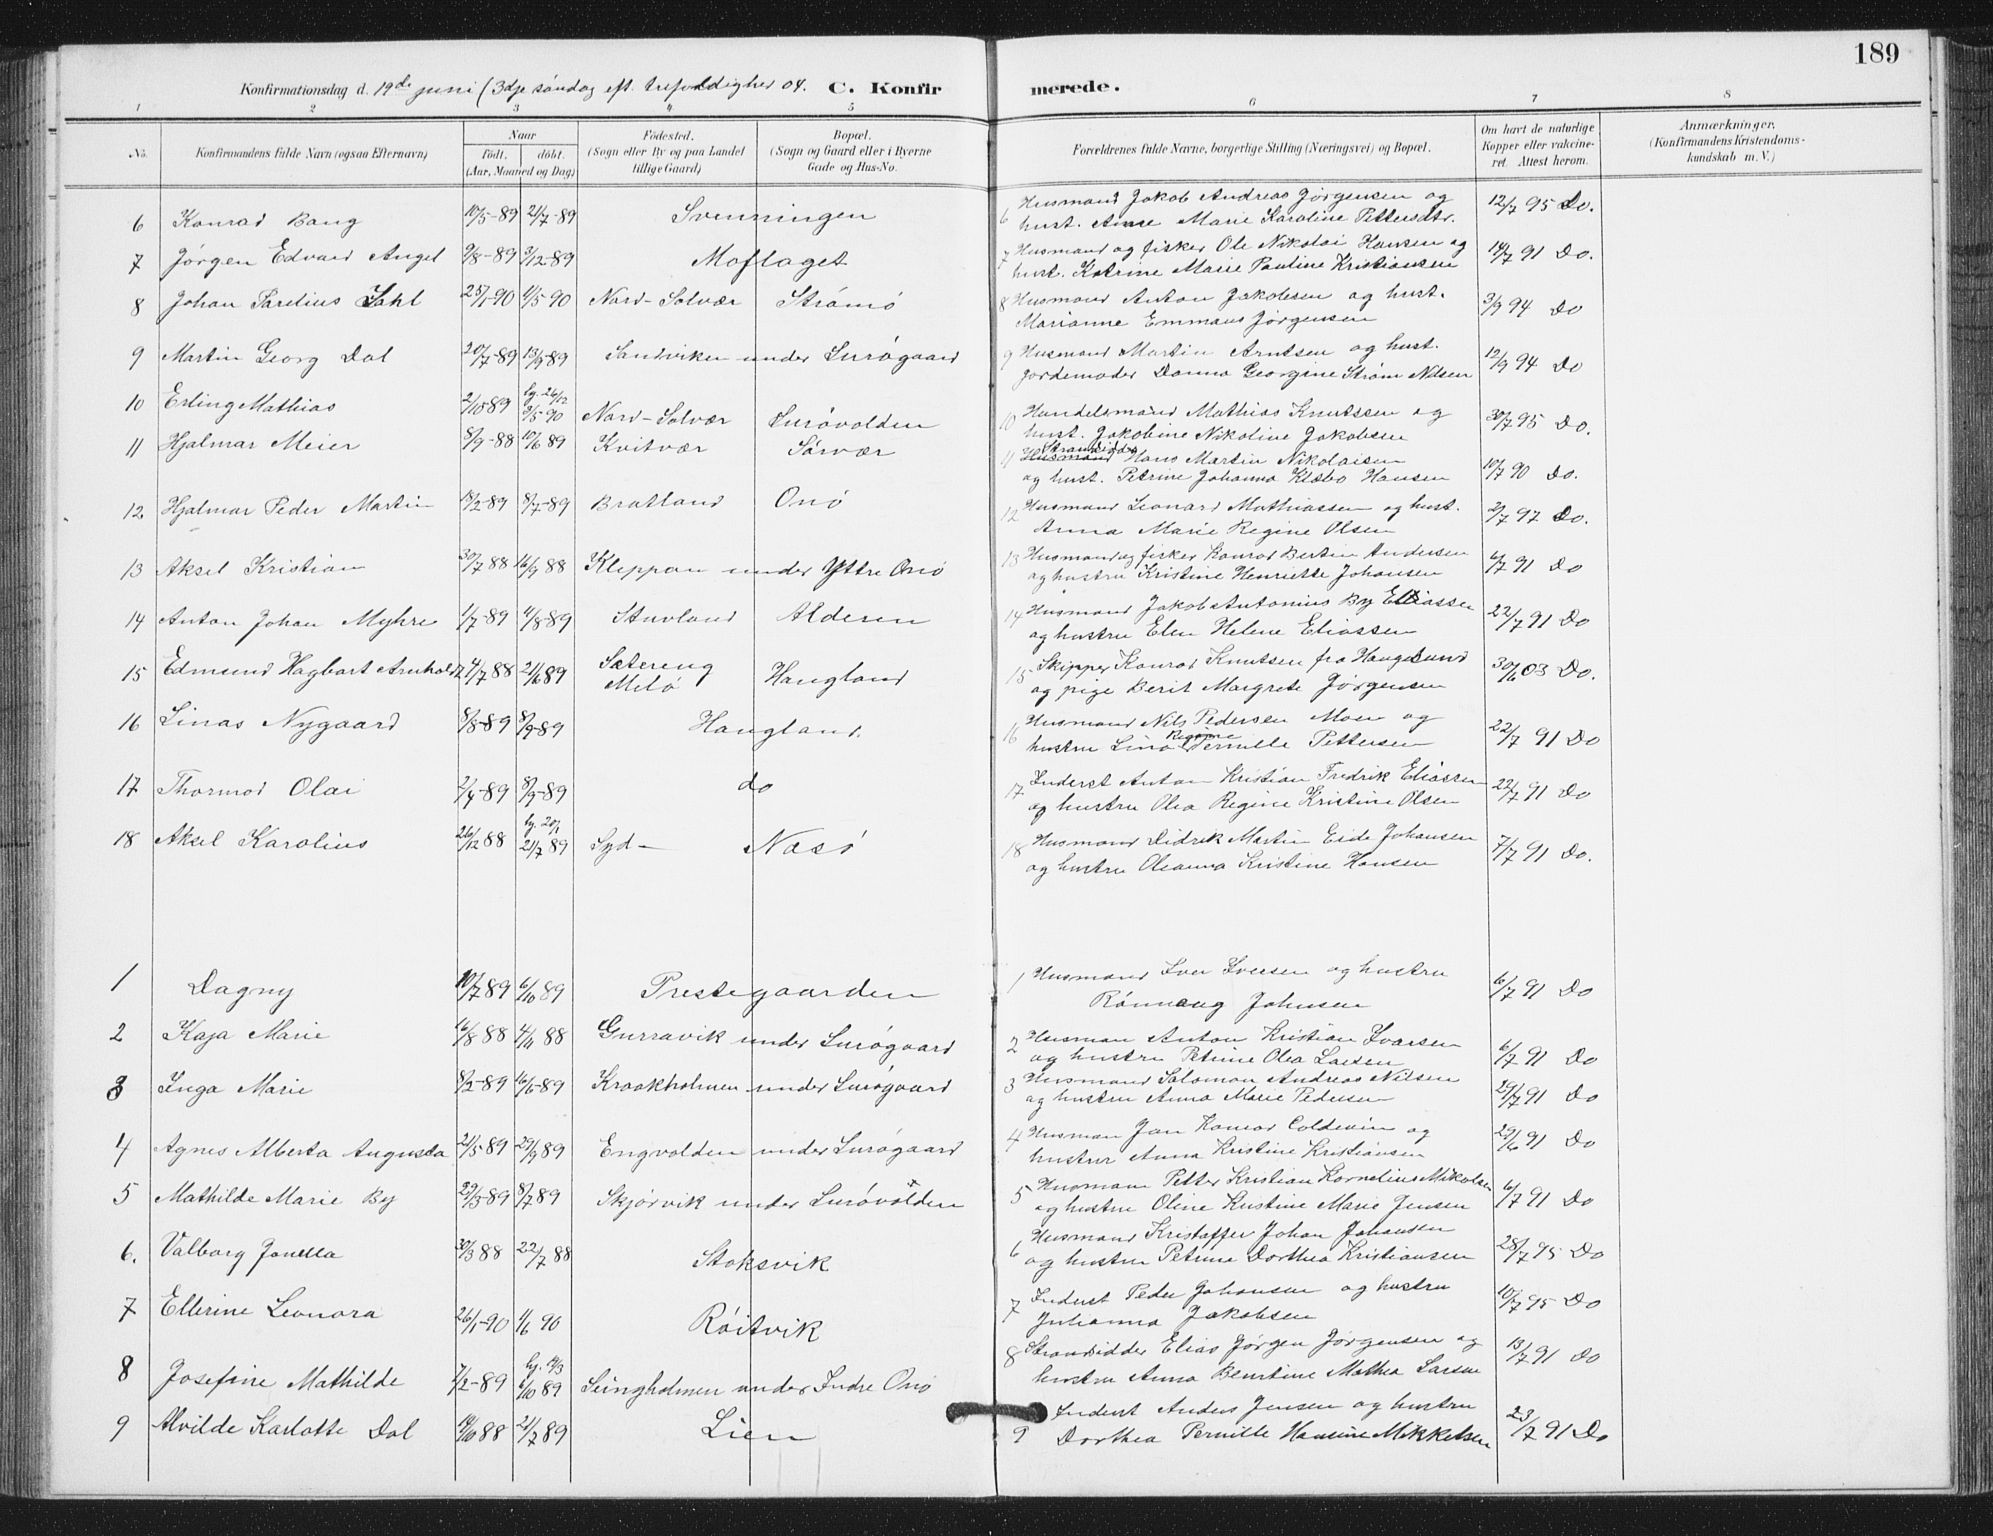 189
Konfirmationsdag d. 19de juni (3dje søndag eft. trefoldighed 04. C. Konfirmerede.
1 2 3 4 5 6 7 8
No. Konfirmandens fulde Navn (ogsaa Efternavn) Naar født, døbt. (Aar, Maaned og Dag) Fødested. (Sogn eller By og paa Landet tillige Gaard) Bopæl. (Sogn og Gaard eller i Byerne Gade og Hus-No. Forældrenes fulde Navne, borgerlige Stilling (Næringsvei) og Bopæl. Om havt de naturlige Kopper eller vakcineret. Attest herom. Anmærkninger. (Konfirmandens Kristendomskundskab m. V.)
6 Konrad Bang 10/5-89 21/7-89 Svenningen 6 Husmand Jakob Andreas Jørgensen og 12/7 95 Do.
hust. Anne Marie Karoline Pettersdtr.
7 Jørgen Edvard Angel 9/8-89 3/12-89 Moflaget 7 Husmand og fisker Ole Nikolai Hansen og 14/7 91 Do.
hust. Katrine Marie Pauline Kristiansen
8 Johan Parelius Dahl 25/1-90 4/5-90 Nord-Solvær Strømø 8 Husmand Anton Jakobsen og hust. 3/9 94 Do
Marianne Emmaus Jørgensen
9 Martin Georg Dal 20/7-89 13/9-89 Sandviken under Lurøgaard 9 Husmand Martin Arntsen og hust. 12/9 94 Do
jordemoder Danna Georgine Strøm Nilsen
10 Erling Mathias 2/10 89 hj. 26/12 3/5-90 Nord-Solvær Lurøvolden 10 Handelsmand Mathias Knutssen og 30/7 95 Do.
hust. Jakobine Nikoline Jakobsen
11 Hjalmar Meier 8/9-88 10/6 89 Kvitvær Sørvær 11 Husmand Strandsidder Hans Martin Nikolaisen 10/7 90 Do.
og hust. Petrine Johanna Klæbo Hansen
12 Hjalmar Peder Martin 18/2-89 8/7-89 Bratland Onø 12 Husmand Leonard Mathiassen og hust. 2/7 97 Do.
Anna Marie Regine Olsen
13 Aksel Kristian 30/7 88 16/9 88 Kleppan under Yttre Onø 13 Husmand og fisker Konrad Bertin Andersen 6/7 91 Do
og hustru Kristine Henriette Johansen
14 Anton Johan Myhre 1/7-89 4/8-89 Stuvland Aldersen 14 Husmand Jakob Antonius By Eliassen 22/7 91 Do
og hustru Elen Helene Eliassen
15 Edmund Hagbart Arnhold 4/7 88 21/6 89 Sætereng Milø Haugland 15 Skipper Konrad Knutsen fra Haugesund 30/6 03 Do.
og pige Berit Margrete Jørgensen
16 Linas Nygaard 8/8-89 8/9-89 Haugland. 16 Husmand Nils Pedersen Moen og 22/7 91 Do
hustru Lina Regine Pernille Pettersen
17 Thormod Olai 2/4-89 8/9-89 do 17 Inderst Anton Kristian Fredrik Eliassen 22/7 91 Do
og hustru Olea Regine Kristine Olsen
18 Aksel Karolius 26/12 88 hj. 20/1 21/7 89 Syd- Nasø 18 Husmand Didrik Martin Eide Johansen 7/7 91 Do.
og hustru Oleanna Kristine Hansen
1 Dagny 10/7 89 6/10 89 Prestegaarden 1 Husmand Iver Iversen og hustru 6/7 91 Do
Rønnaug Johnsen
2 Kaja Marie 16/8 88 4/11 88 Gurravik under Lurøgaard 2 Husman Anton Kristian Ivarsen 6/7 91 Do
og hustru Petrine Olea Larsen
3 Inga Marie 8/2-89 16/6-89 Kraakholmen under Lurøgaard 3 Husmand Salomon Andreas Nilsen 29/7 91 Do
og hustru Anna Marie Pedersen
4 Agnes Alberta Augusta 21/5-89 29/9 89 Engvolden under Lurøgaard 4 Husman Jan Konrad Coldevin og 29/6 91 Do
hustru Anna Kristine Kristiansen
5 Mathilde Marie By 29/3-89 8/7 89 Skjørvik under Lurøvolden 5 Husmann Petter Kristian Kornelius Mikalsen 6/7 91 Do
og hustru Oline Kristine Marie Jensen
6. Valborg Jonetta 30/3 88 22/7 88 Stoksvik 6 Husmand Kristoffer Johan Johansen 28/7 95 Do
og hustru Petrine Dorthea Kristiansen
7 Ellerine Leonora 26/1-90 1/6 90 Røitvik 7 Inderst Peder Johansen og hustru 10/7 95 Do
Julianna Jakobsen
8 Josefine Mathilde 7/2-89 hj. 14/3 6/10 89 Seingholmen under Indre Onø 8 Strandsidder Elias Jørgen Jørgensen og 13/7 91 Do
hustru Anna Berntine Mathea Larsen
9 Alvilde Karlotte Dal 19/10 88 21/7 89 Lien 9 Inderst Anders Jensen og hustru 23/7 91 Do
Dorthea Pernille Hansine Mikkelsen